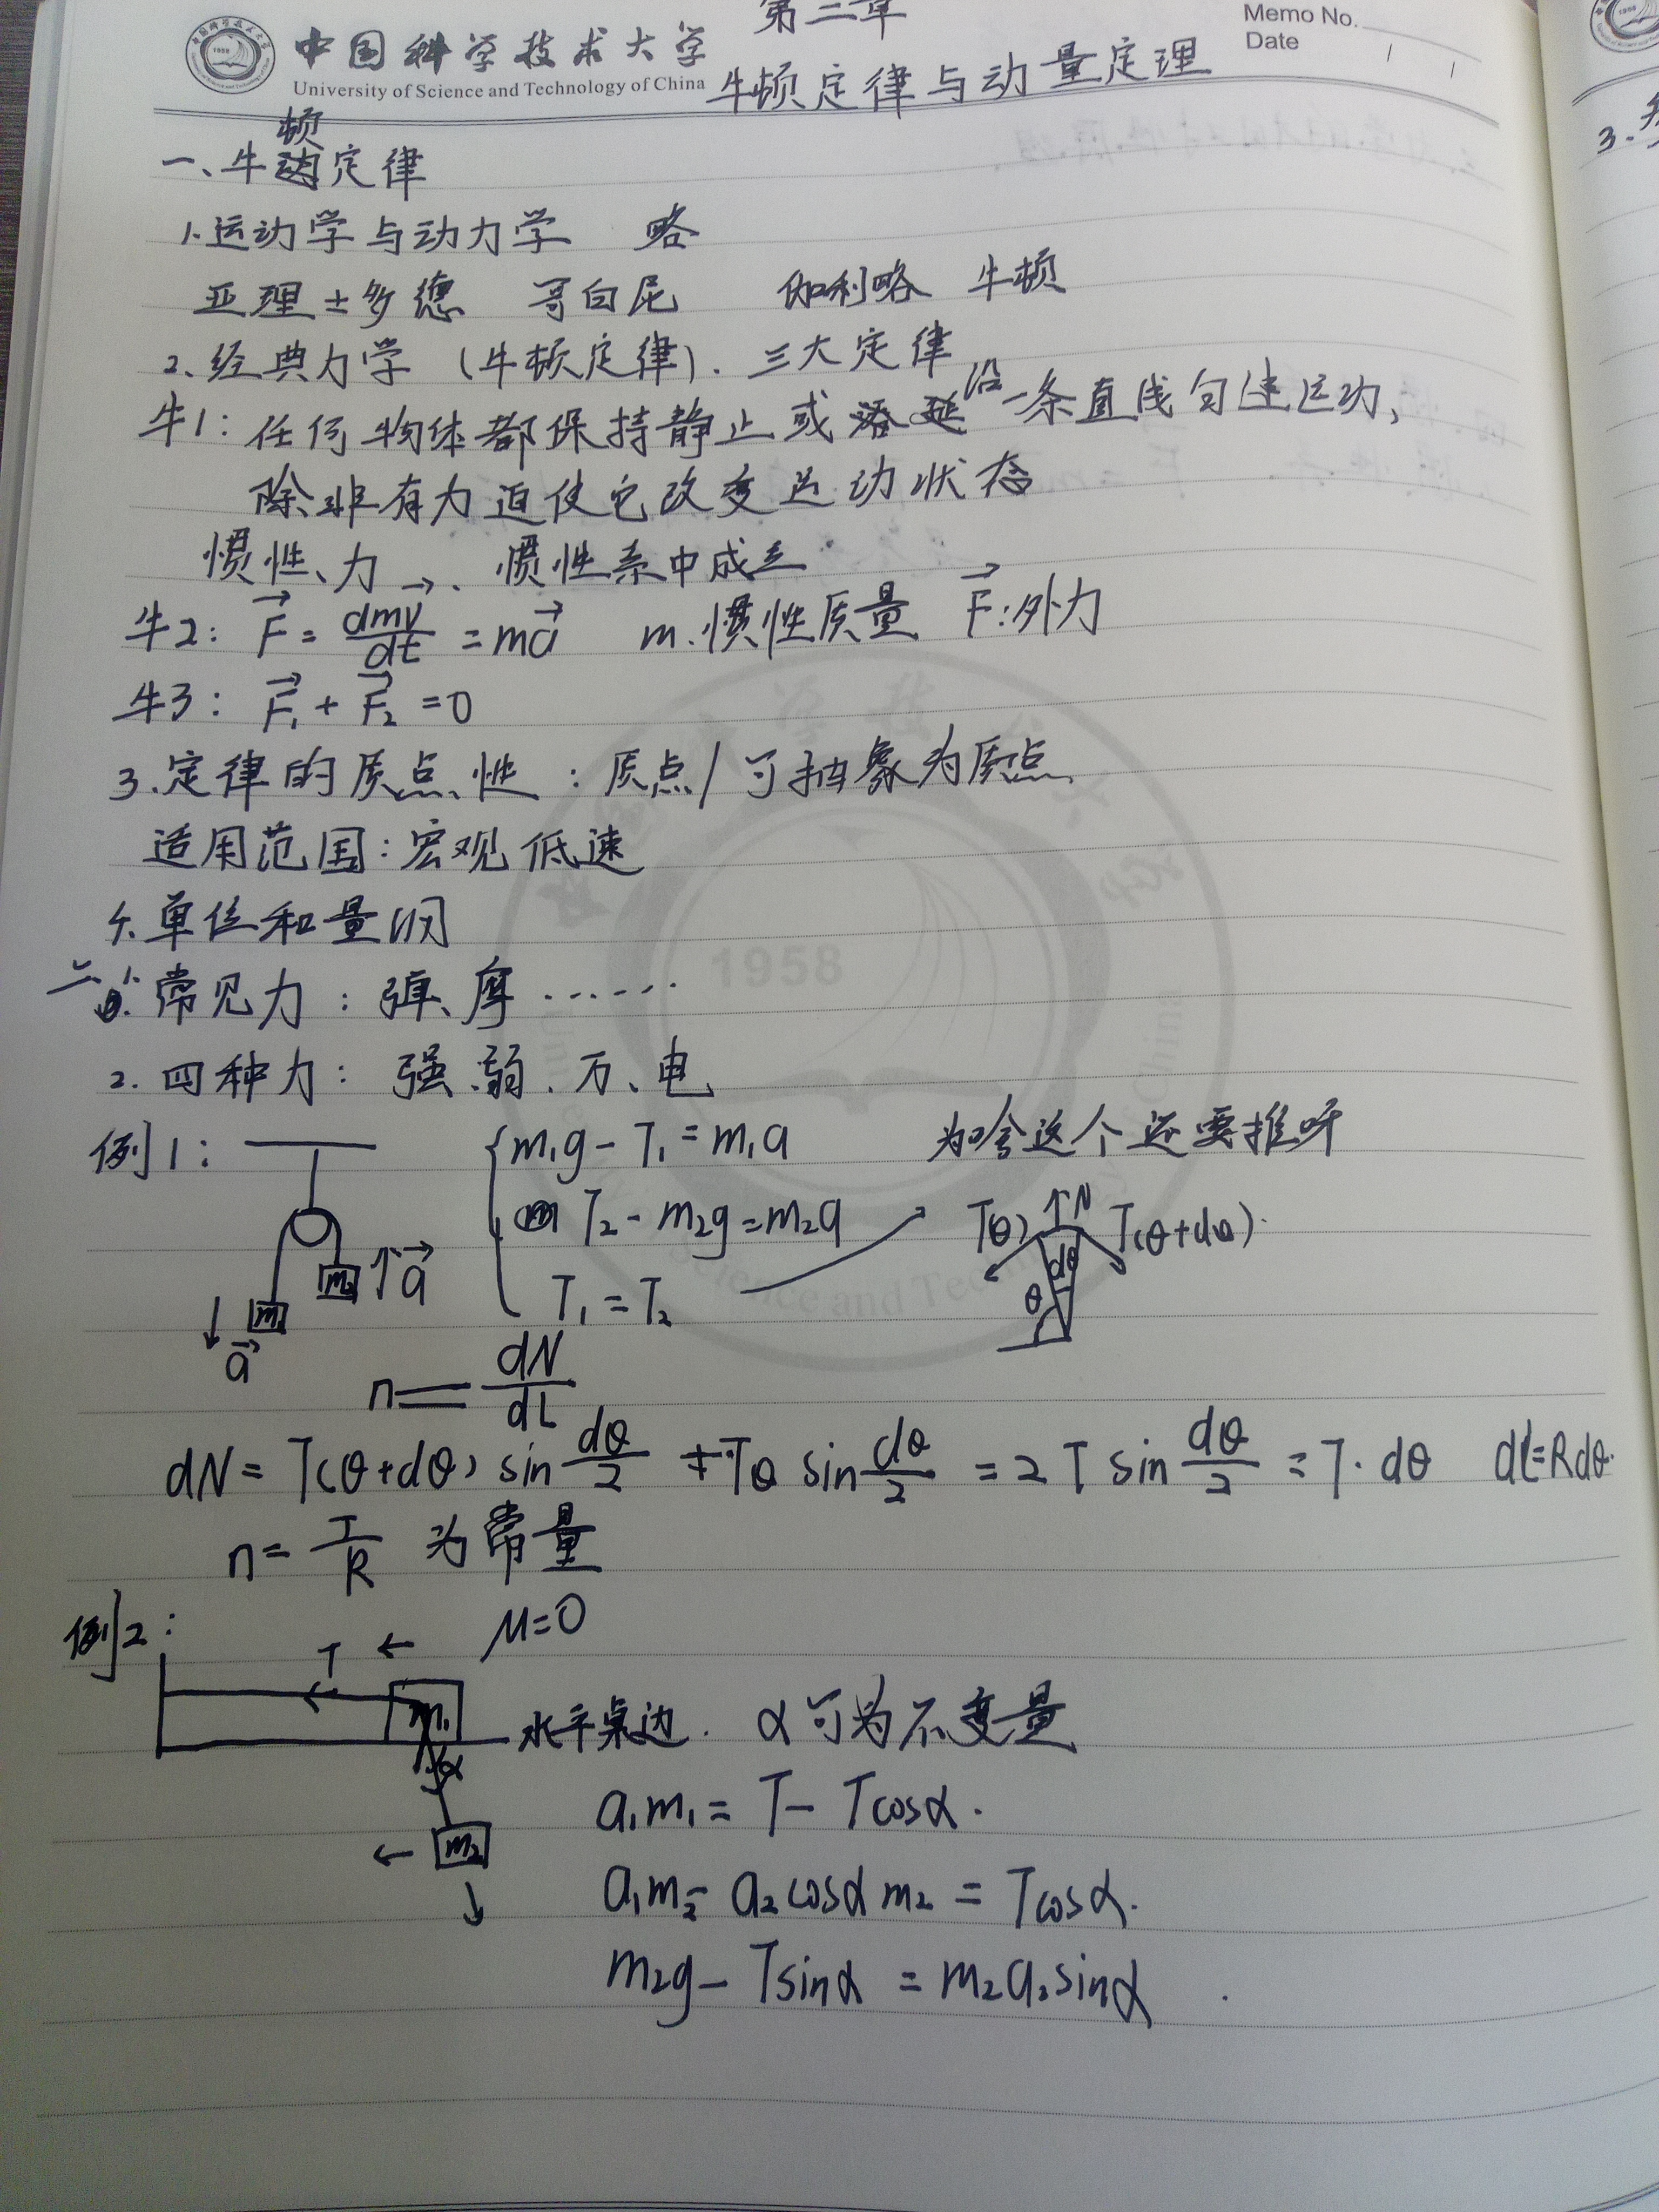 中国科学技术大学
University of Science and Technology of China
第二章
牛顿定律与动量定理
Memo No.
Date
一、牛顿定律
1.运动学与动力学 略
亚理士多德 哥白尼 伽利略 牛顿
2.经典力学（牛顿定律）. 三大定律
牛1: 任何物体都保持静止或沿一条直线匀速运动,
除非有力迫使它改变运动状态
惯性、力、惯性系中成立
牛2: F⃗ = dmv⃗/dt = ma⃗ m.惯性质量 F⃗:外力
牛3: F⃗₁ + F⃗₂ = 0
3.定律的质点性: 质点/可抽象为质点
适用范围: 宏观低速
4.单位和量纲
二、1.常见力: 弹、摩……
2.四种力: 强、弱、万、电
例1: m₁g - T₁ = m₁a 为啥这个还要推呀
T₂ - m₂g = m₂a
T₁ = T₂
T(θ) N T(θ+dθ)
dθ
θ
m₁ m₂ a⃗
a⃗
n = dN/dL
dN = T(θ+dθ) sin dθ/2 + Tθ sin dθ/2 = 2T sin dθ/2 = T·dθ dl=Rdθ
n = T/R 为常量
例2: μ=0
T
m₁ 水平桌边. α可为不变量
α
m₂
a₁m₁ = T - Tcosα.
a₁m₂ - a₂cosαm₂ = Tcosα.
m₂g - Tsinα = m₂a₂sinα
1958
3.